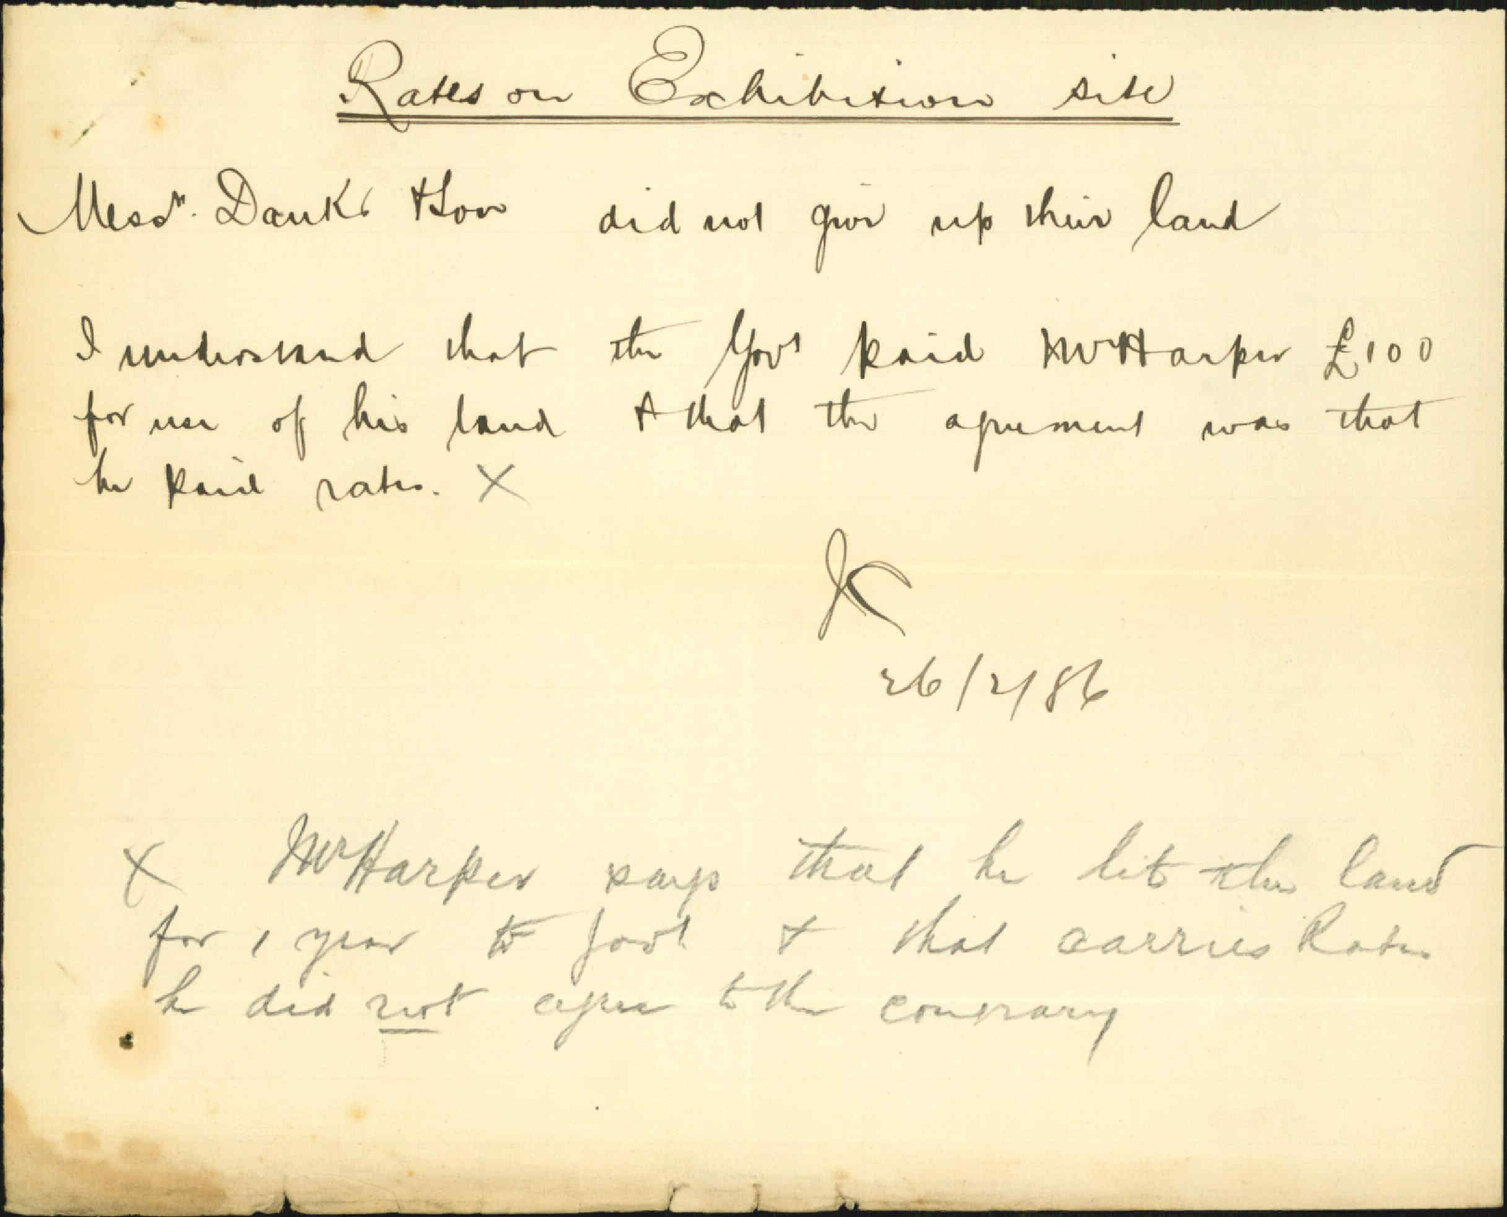 Rates on Exhibition site
Messrs. Danks & Son did not give up their land
I understand that the Govt paid Mr Harper £100
for use of his land & that the agreement was that
he paid rates. X
JC
26/2/86
X Mr Harper says that he let the land
for 1 year to Govt & that carries Rates
he did not agree to the contrary